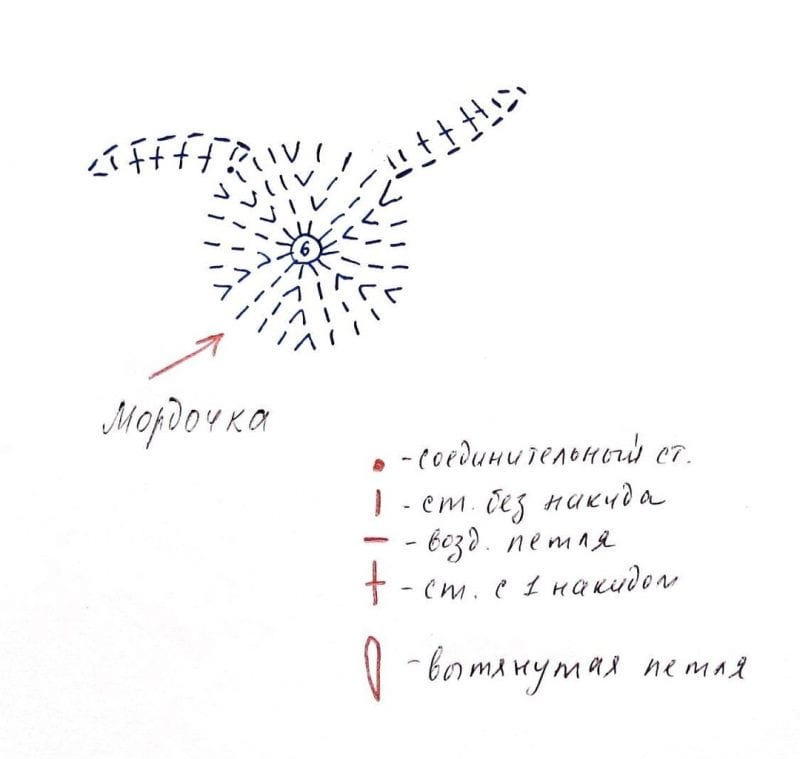 6
Мордочка
- соединительный ст.
- ст. без накида
- возд. петля
- ст. с 1 накидом
- вытянутая петля